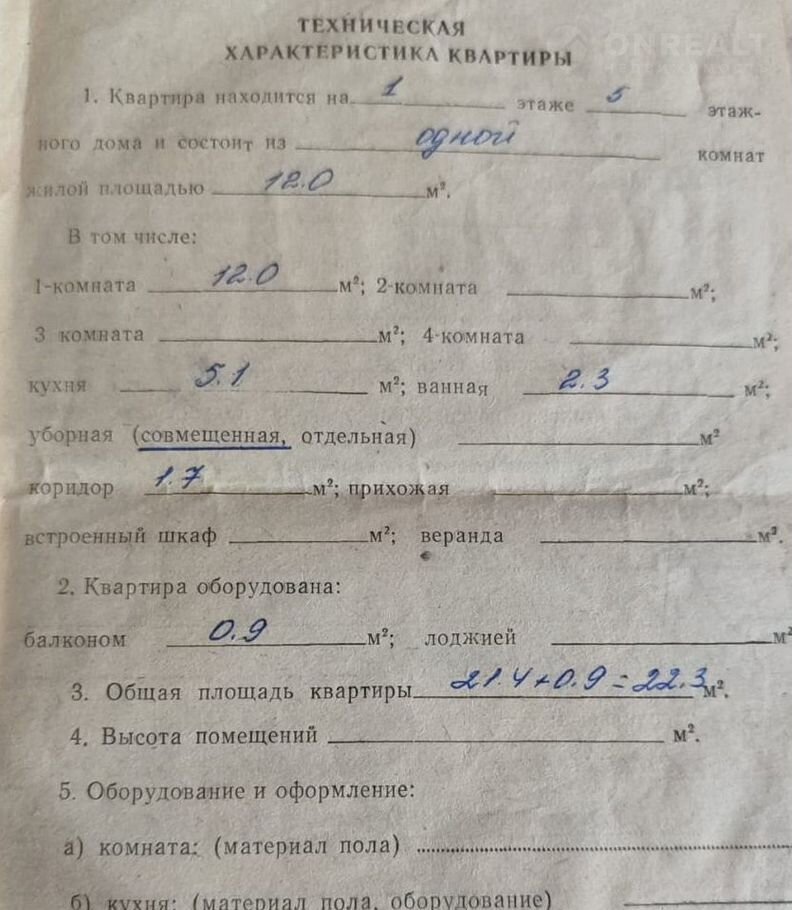 ON REALT
ТЕХНИЧЕСКАЯ
ХАРАКТЕРИСТИКА КВАРТИРЫ
1. Квартира находится на 1 этаже 5 этаж-
ного дома и состоит из одной комнат
жилой площадью 12.0 м².
В том числе:
1-комната 12.0 м²; 2-комната м²;
3 комната м²; 4-комната м²;
кухня 5.1 м²; ванная 2.3 м²;
уборная (совмещенная, отдельная) м²
коридор 1.7 м²; прихожая м²;
встроенный шкаф м²; веранда м².
2. Квартира оборудована:
балконом 0.9 м²; лоджией м²
3. Общая площадь квартиры 21.4+0.9=22.3 м².
4. Высота помещений м².
5. Оборудование и оформление:
а) комната: (материал пола)
б) кухня: (материал пола, оборудование)